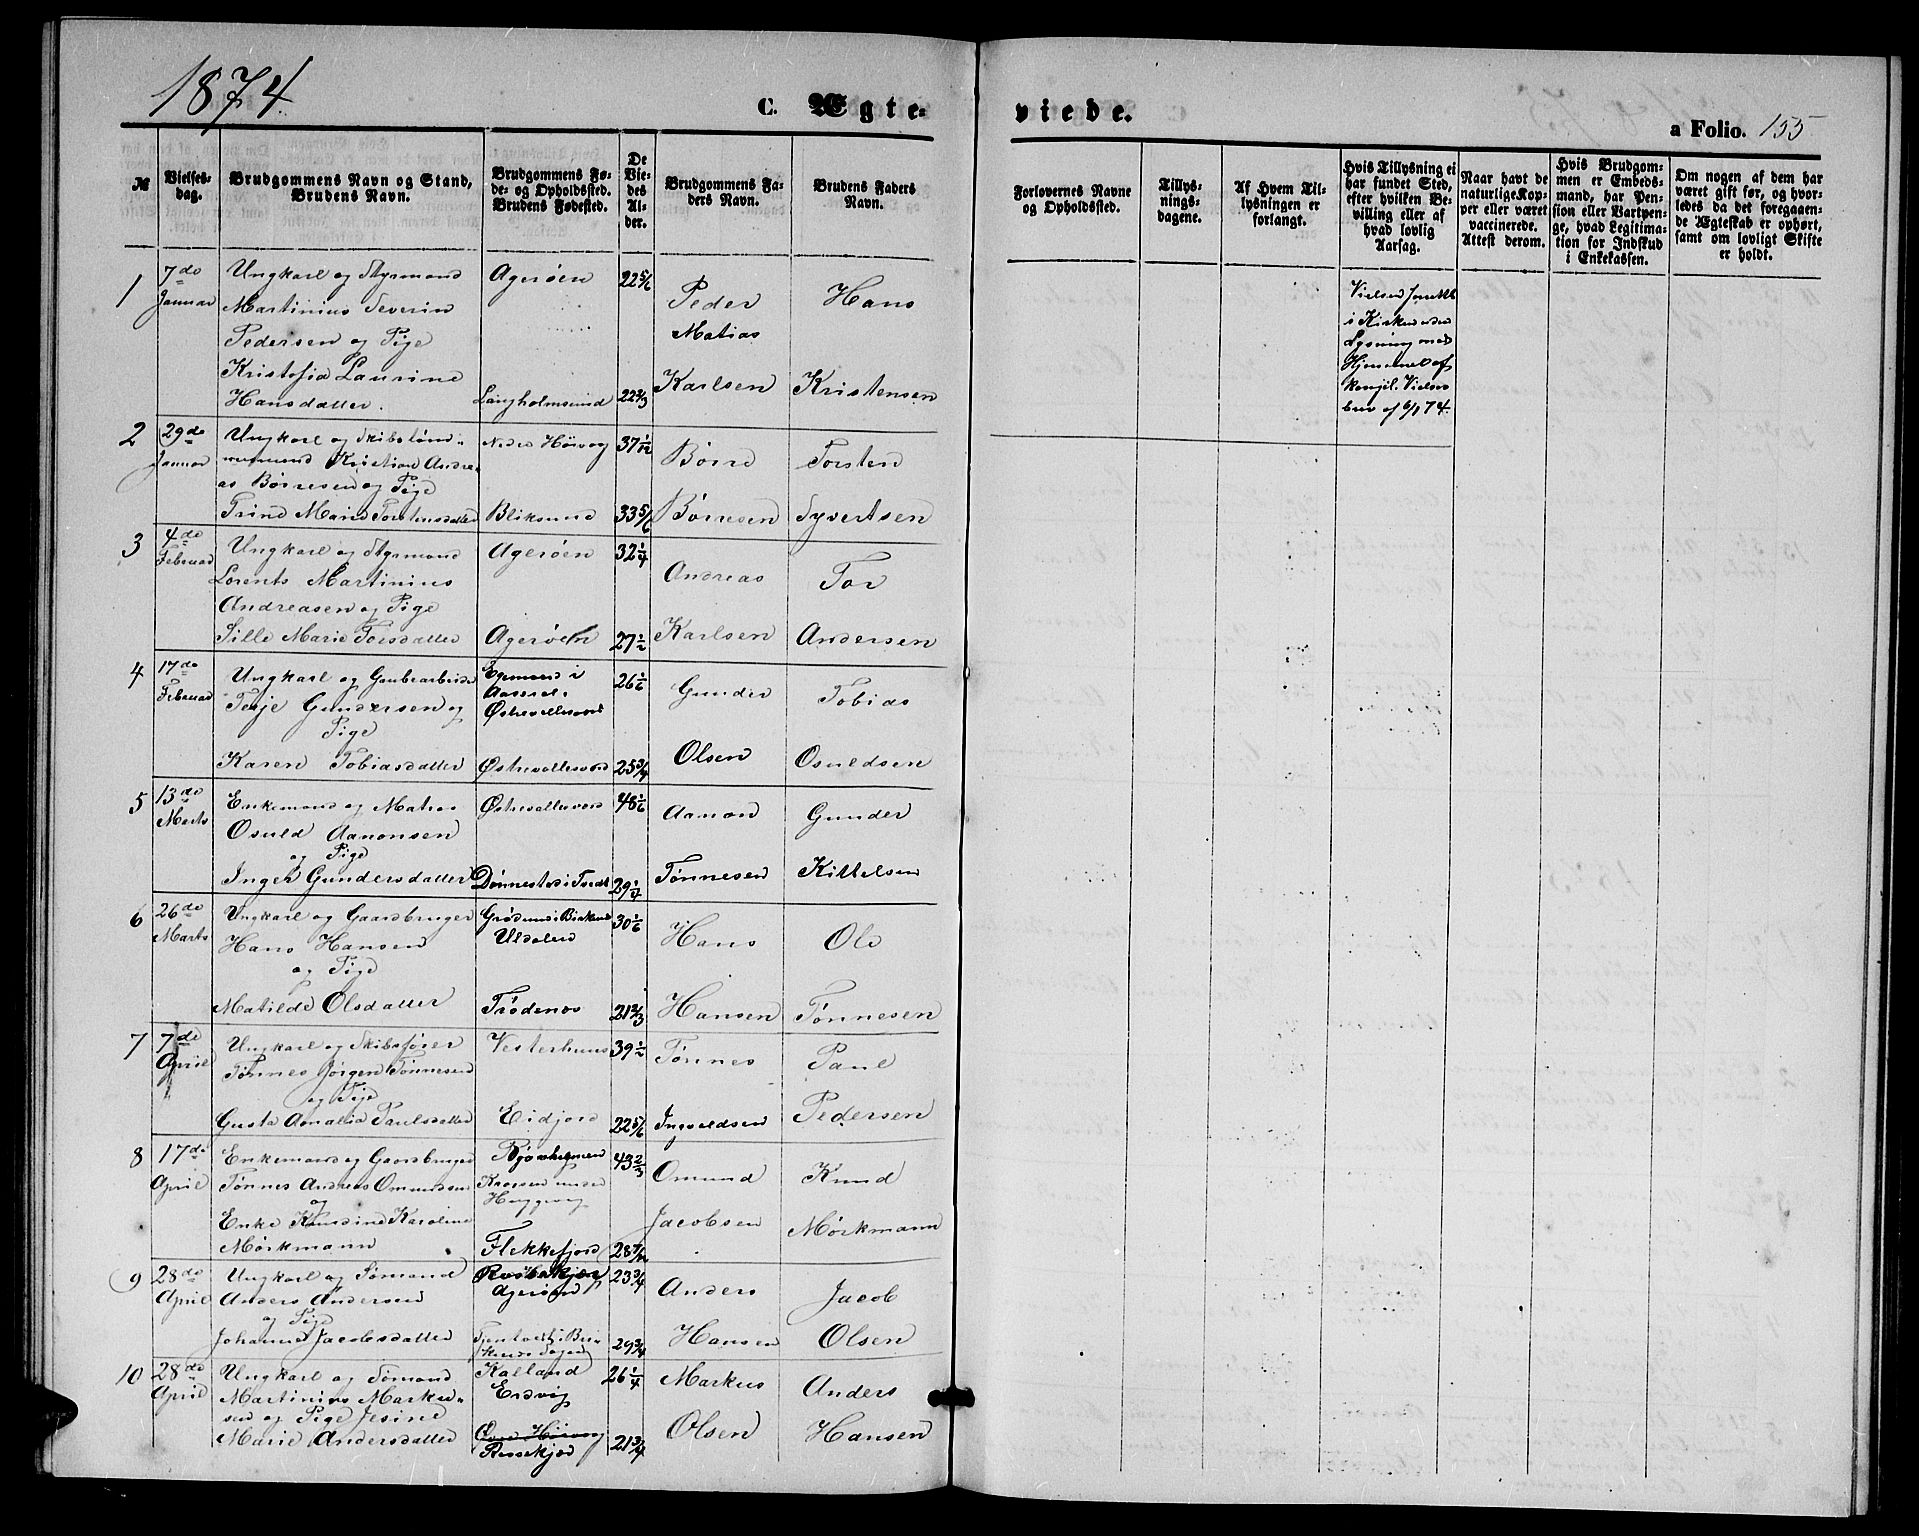 1874
C. Ægte-
viede.
a Folio. 155
№
Vielses-
dag.
Brudgommens Navn og Stand,
Brudens Navn.
Brudgommens Fø-
de- og Opholdssted.
Brudens Fødested.
De
Vie-
des
Al-
der.
Brudgommens Fa-
ders Navn.
Brudens Faders
Navn.
Forlovernes Navne
og Opholdssted.
Tillys-
nings-
dagene.
Af Hvem Til-
lysningen er
forlangt.
Hvis Tillysning ei
har fundet Sted,
efter hvilken Be-
villing eller af
hvad lovlig
Aarsag.
Naar havt de
naturlige Kop-
per eller været
vaccinerede.
Attest derom.
Hvis Brudgom-
men er Embeds-
mand, har Pen-
sion eller Vartpen-
ge, hvad Legitima-
tion for Indskud
i Enkekassen.
Om nogen af dem har
været gift før, og hvor-
ledes da det foregaaen-
de Ægteskab er ophørt,
samt om lovligt Skifte
er holdt.
1
7de
Januar
Ungkarl og Styrmand
Martinius Severin
Pedersen og Pige
Kristofia Laurine
Hansdatter.
Agerøen
Langholmsund
22 5/6
22 2/3
Peder
Matias
Karlsen
Hans
Kristensen
i Kirken uden
Lysning med
Hjemmel af
kongl. Vielses
brev af 6/1 74.
2
29de
Januar
Ungkarl og Skibstøm-
mermand Kristian Andre-
as Børresen og Pige
Trine Marie Torstensdatter
Nedre Høivog
Bliksund
37 1/12
33 5/6
Børre
Børresen
Torsten
Syvertsen
3
4de
Februar
Ungkarl og Styrmand
Lorents Martinius
Andreasen og Pige
Sille Marie Torsdatter
Agerøen
Agerøen
32 1/4
27 1/2
Andreas
Karlsen
Tor
Andersen
4
17de
Februar
Ungkarl og Grubearbeider
Terje Gundersen og
Pige
Karen Tobiasdatter
Østrevallesverd
Østrevallesverd
26 1/6
25 3/4
Gunder
Olsen
Tobias
Osuldsen
5
13de
Marts
Enkemand og Matros
Osuld Aanonsen
og Pige
Inger Gundersdatter
Østrevallesverd
Dønnestad i Tveit
48 1/6
29 1/4
Aanon
Tønnesen
Gunder
Kittelsen
6
26de
Marts
Ungkarl og Gaardbruger
Hans Hansen
og Pige
Matilde Olsdatter
Trødenes
30 1/6
21 2/3
Hans
Hansen
Ole
Tønnesen
7
7de
April
Ungkarl og Skibsfører
Tønnes Jørgen Tønnesen
og Pige
Gusta Amalia Paulsdatter
Vesterhuus
Eidjord
39 1/2
22 5/6
Tønnes
Ingvaldsen
Paul
Pedersen
8
17de
April
Enkemand og Gaardbruger
Tønnes Andreas Omundsen
og
Enke Knudine Karoline
Mørkmann
Flekkefjord
43 2/3
28 7/12
Omund
Jacobsen
Knud
Mørkmann
9
28de
April
Ungkarl og Sømand
Anders Andersen
og Pige
Johanne Jacobsdatter
Agerøen
23 3/4
29 3/4
Anders
Hansen
Jacob
Olsen
10
28de
April
Ungkarl og Sømand
Martinius Marku-
sen og Pige Jesine
Marie Andersdatter
Kalland
Eidvig
Øvre Høivog
26 1/4
21 3/4
Markus
Olsen
Anders
Hansen